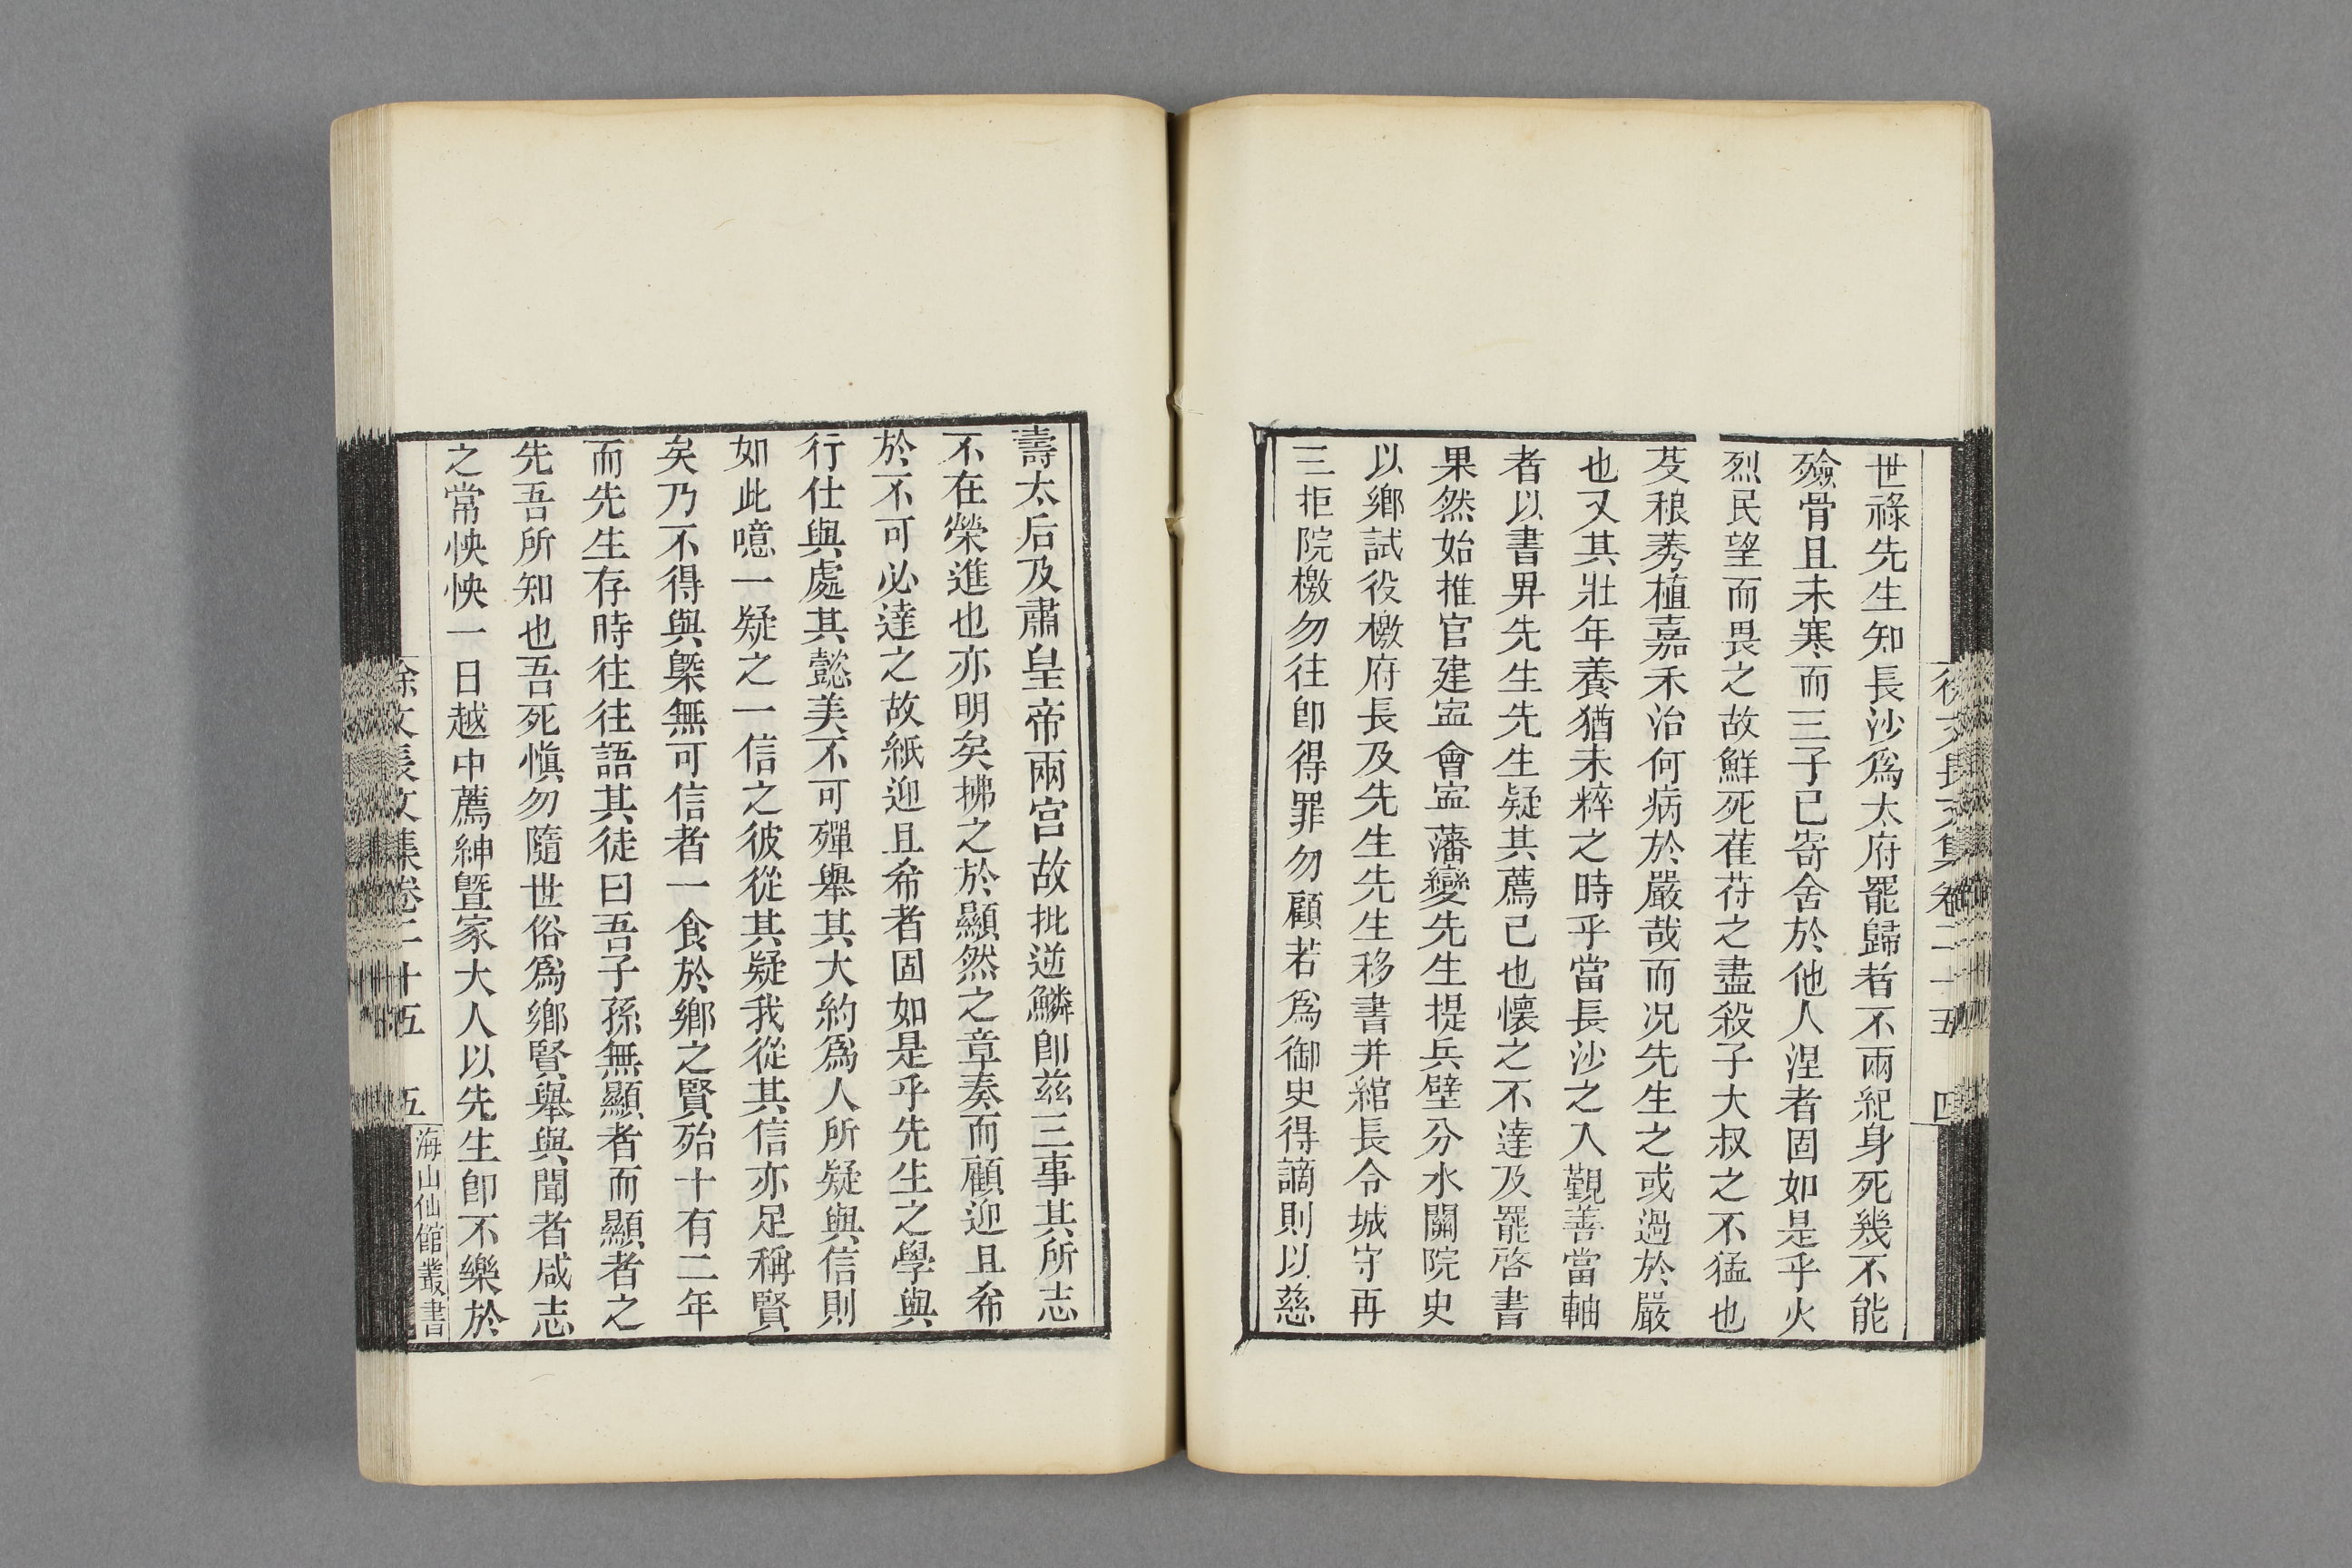 徐文長文集卷二十五 四
世祿先生知長沙爲太府罷歸者不兩紀身死幾不能
殮骨且未寒而三子已寄舍於他人涅者固如是乎火
烈民望而畏之故鮮死萑苻之盡殺子大叔之不猛也
芟稂莠植嘉禾治何病於嚴哉而况先生之或過於嚴
也又其壯年養猶未粹之時乎當長沙之入覲善當軸
者以書畀先生先生疑其薦己也懷之不達及罷啓書
果然始推官建寍會寍藩變先生提兵壁分水關院史
以鄉試役檄府長及先生先生移書并綰長令城守再
三拒院檄勿往卽得罪勿顧若爲御史得謫則以慈
壽太后及肅皇帝兩宮故批逆鱗卽兹三事其所志
不在榮進也亦明矣拂之於顯然之章奏而顧迎且希
於不可必達之故紙迎且希者固如是乎先生之學與
行仕與處其懿美不可殫舉其大約爲人所疑與信則
如此噫一疑之一信之彼從其疑我從其信亦足稱賢
矣乃不得與槩無可信者一食於鄉之賢殆十有二年
而先生存時往往語其徒曰吾子孫無顯者而顯者之
先吾所知也吾死愼勿隨世俗爲鄉賢舉與聞者咸志
之常怏怏一日越中薦紳曁家大人以先生卽不樂於
徐文長文集卷二十五 五
海山仙館叢書